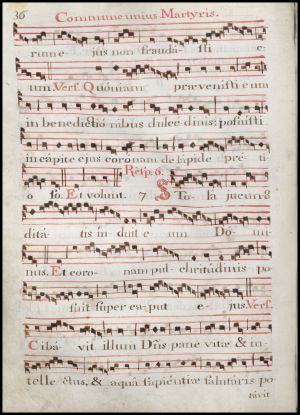 36 Commune unius Martyris.
rum e- jus non fraudà- sti e-
um. Vers. Quóniam prævenísti eum
in benedictió nibus dulcédinis: posuísti
in cápite ejus corónam de lápide pré ti
Resp. 6.
o so. Et volunt. 7 S To- la jucun
ditá- tis índuit e- um Dó- mi-
nus. Et coro- nam pul- chritúdinis po-
suit super ca-put e- jus. Vers.
Cibá- vit illum Dñs pane vitæ & in-
telle- ctus, & aquâ sapiéntiæ salutáris po-
távit